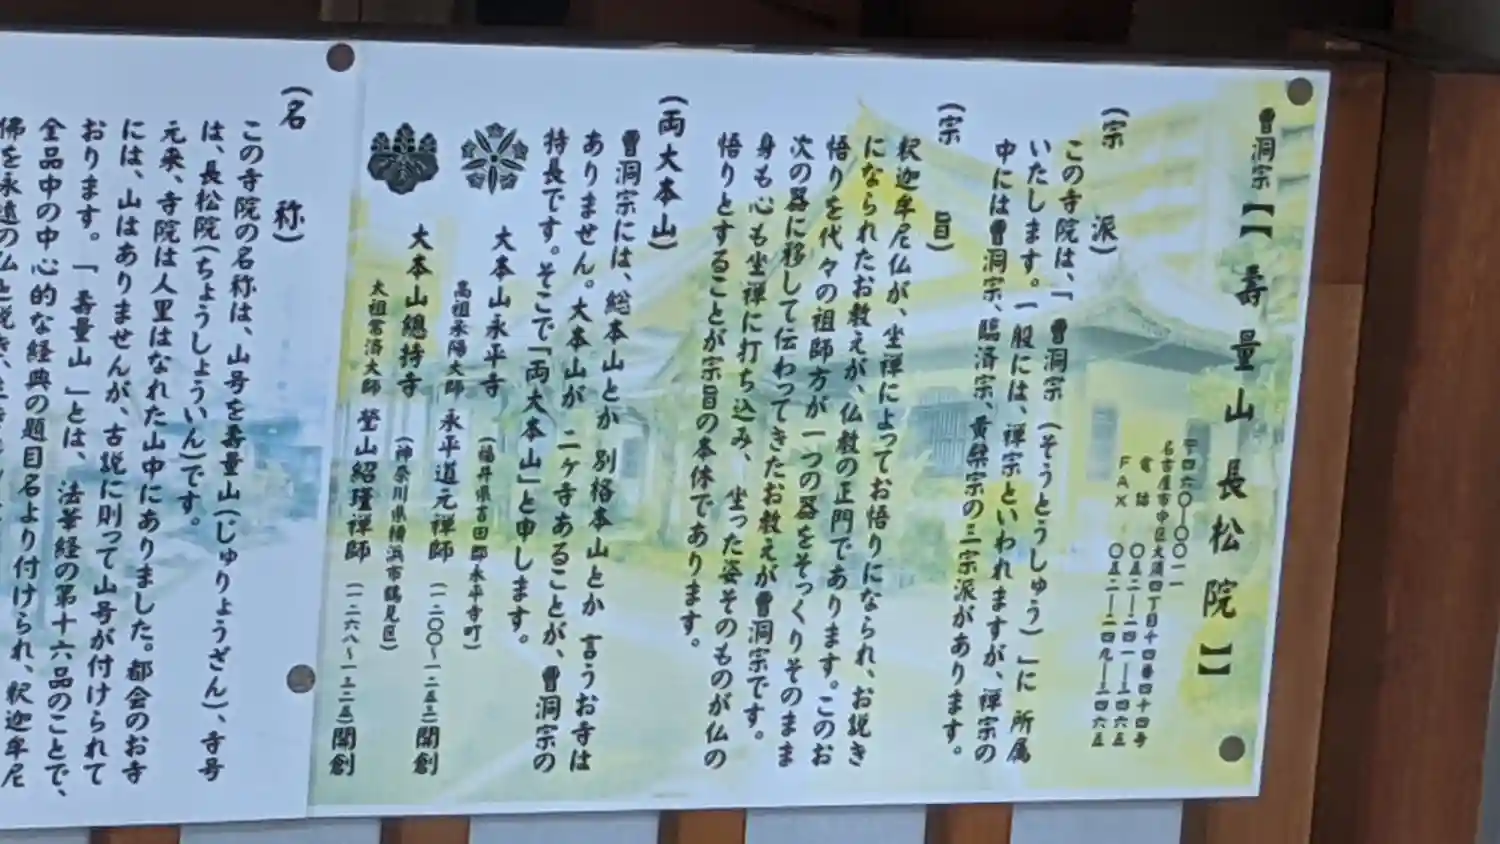 曹洞宗【 壽量山 長松院 】
〒四六〇―〇〇一一
名古屋市中区大須四丁目十四番四十四号
電話 〇五二―二四一―二四六五
FAX 〇五二―二四九―二四六五
(宗派)
この寺院は、「曹洞宗(そうとうしゅう)」に 所属
いたします。一般には、禅宗といわれますが、禅宗の
中には曹洞宗、臨済宗、黄檗宗の三宗派があります。
(宗旨)
釈迦牟尼仏が、坐禅によってお悟りになられ、お説き
になられたお教えが、仏教の正門であります。このお
悟りを代々の祖師方が一つの器をそっくりそのまま
次の器に移して伝わってきたお教えが曹洞宗です。
身も心も坐禅に打ち込み、坐った姿そのものが仏の
悟りとすることが宗旨の本体であります。
(両大本山)
曹洞宗には、総本山とか 別格本山とか 言うお寺は
ありません。大本山が 二ヶ寺あることが、曹洞宗の
特長です。そこで「両大本山」と申します。
大本山永平寺 (福井県吉田郡永平寺町)
高祖承陽大師 永平道元禅師 (一二〇〇〜一二五三)開創
大本山總持寺 (神奈川県横浜市鶴見区)
太祖常済大師 瑩山紹瑾禅師 (一二六八〜一三二五)開創
(名称)
この寺院の名称は、山号を壽量山(じゅりょうざん)、寺号
は、長松院(ちょうしょういん)です。
元来、寺院は人里はなれた山中にありました。都会のお寺
には、山はありませんが、古説に則って山号が付けられて
おります。「壽量山」とは、法華経の第十六品のことで、
全品中の中心的な経典の題目名より付けられ、釈迦牟尼
佛を永遠の仏と説き、